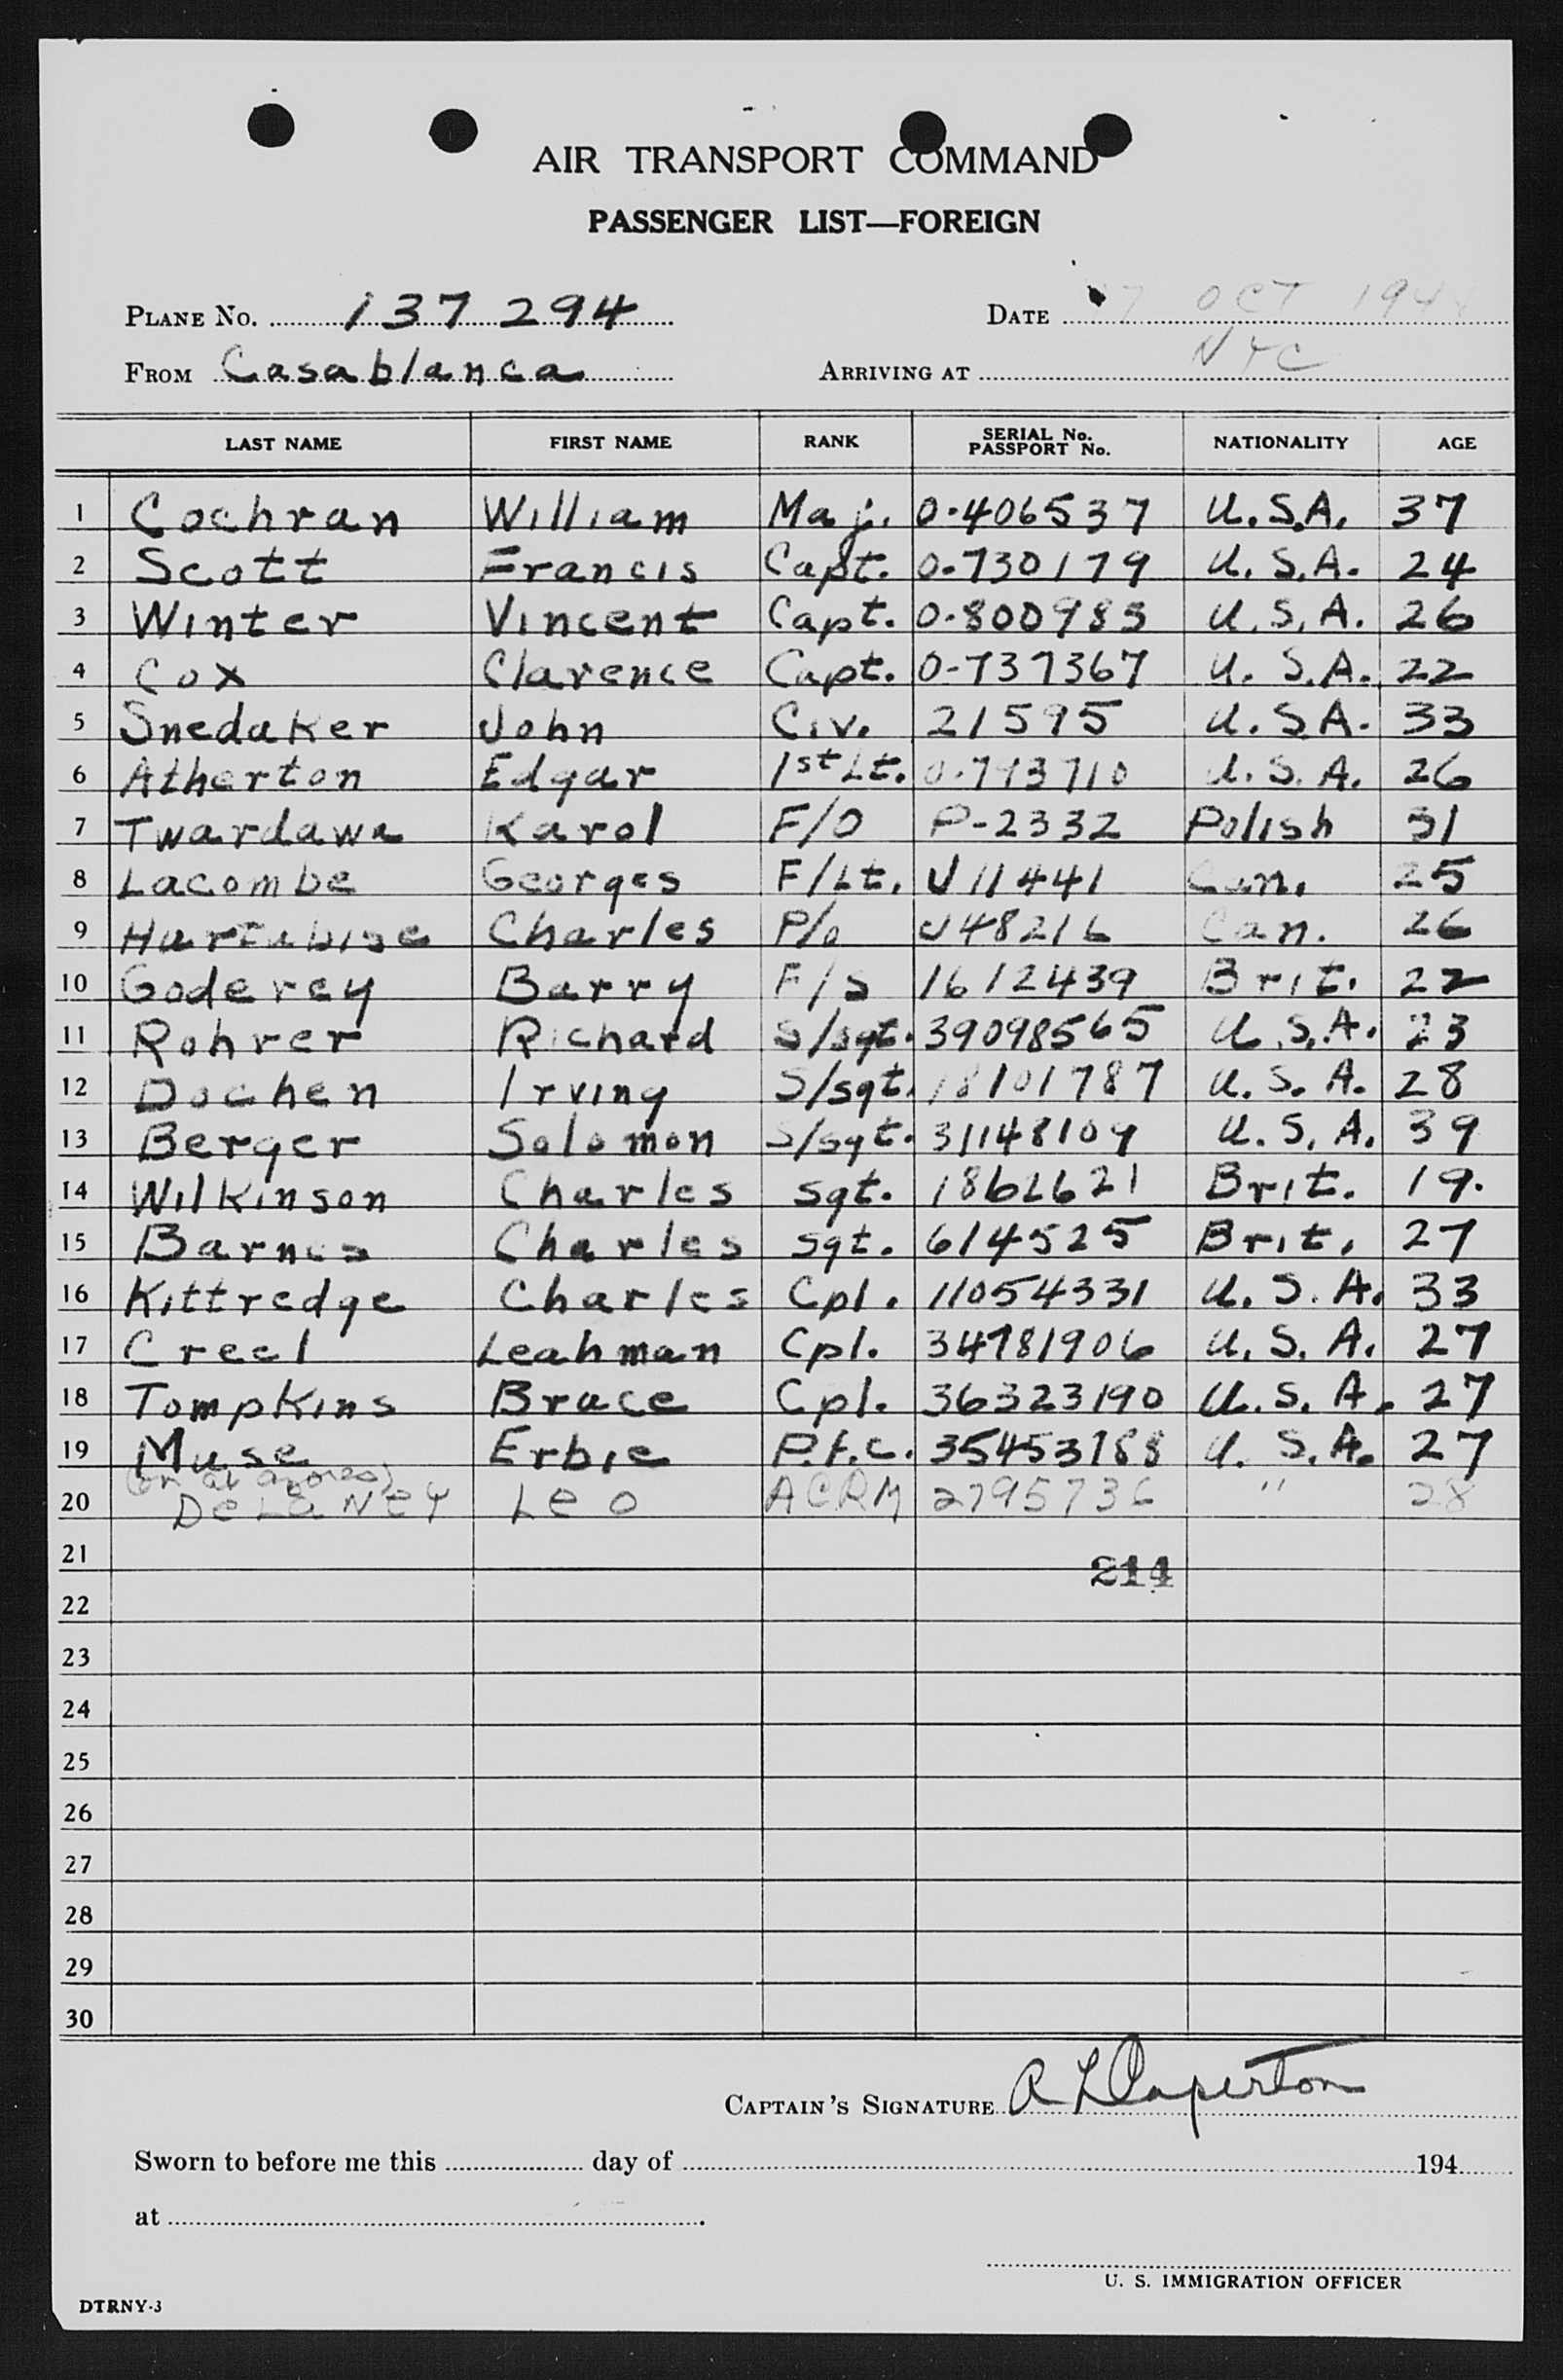 AIR TRANSPORT COMMAND
PASSENGER LIST—FOREIGN
PLANE No. 137 294 DATE 7 OCT 194
FROM Casablanca ARRIVING AT NYC
LAST NAME FIRST NAME RANK SERIAL No. PASSPORT No. NATIONALITY AGE
1 Cochran William Maj. 0-406537 U.S.A. 37
2 Scott Francis Capt. 0-730179 U.S.A. 24
3 Winter Vincent Capt. 0-800983 U.S.A. 26
4 Cox Clarence Capt. 0-737367 U.S.A. 22
5 Snedaker John Civ. 21595 U.S.A. 33
6 Atherton Edgar 1st Lt. 0-793710 U.S.A. 26
7 Twardawa Karol F/O P-2332 Polish 31
8 Lacombe Georges F/Lt. J11441 Can. 25
9 Hurtubise Charles P/o J48216 Can. 26
10 Goderey Barry F/S 1612439 Brit. 22
11 Rohrer Richard S/sgt. 39098565 U.S.A. 23
12 Dochen Irving S/sgt. 18101787 U.S.A. 28
13 Berger Solomon S/sgt. 31148109 U.S.A. 39
14 Wilkinson Charles sgt. 1862621 Brit. 19.
15 Barnes Charles sgt. 614525 Brit. 27
16 Kittredge Charles Cpl. 11054331 U.S.A. 33
17 Creel Leahman Cpl. 34781906 U.S.A. 27
18 Tompkins Brace Cpl. 36323190 U.S.A. 27
19 Muse Erbie P.f.c. 35453188 U.S.A. 27
(on at azores)
20 DeLaNey Leo ACRM 2795736 " 28
21
214
22
23
24
25
26
27
28
29
30
CAPTAIN'S SIGNATURE R L Caperton
Sworn to before me this day of 194
at .
U. S. IMMIGRATION OFFICER
DTRNY-3